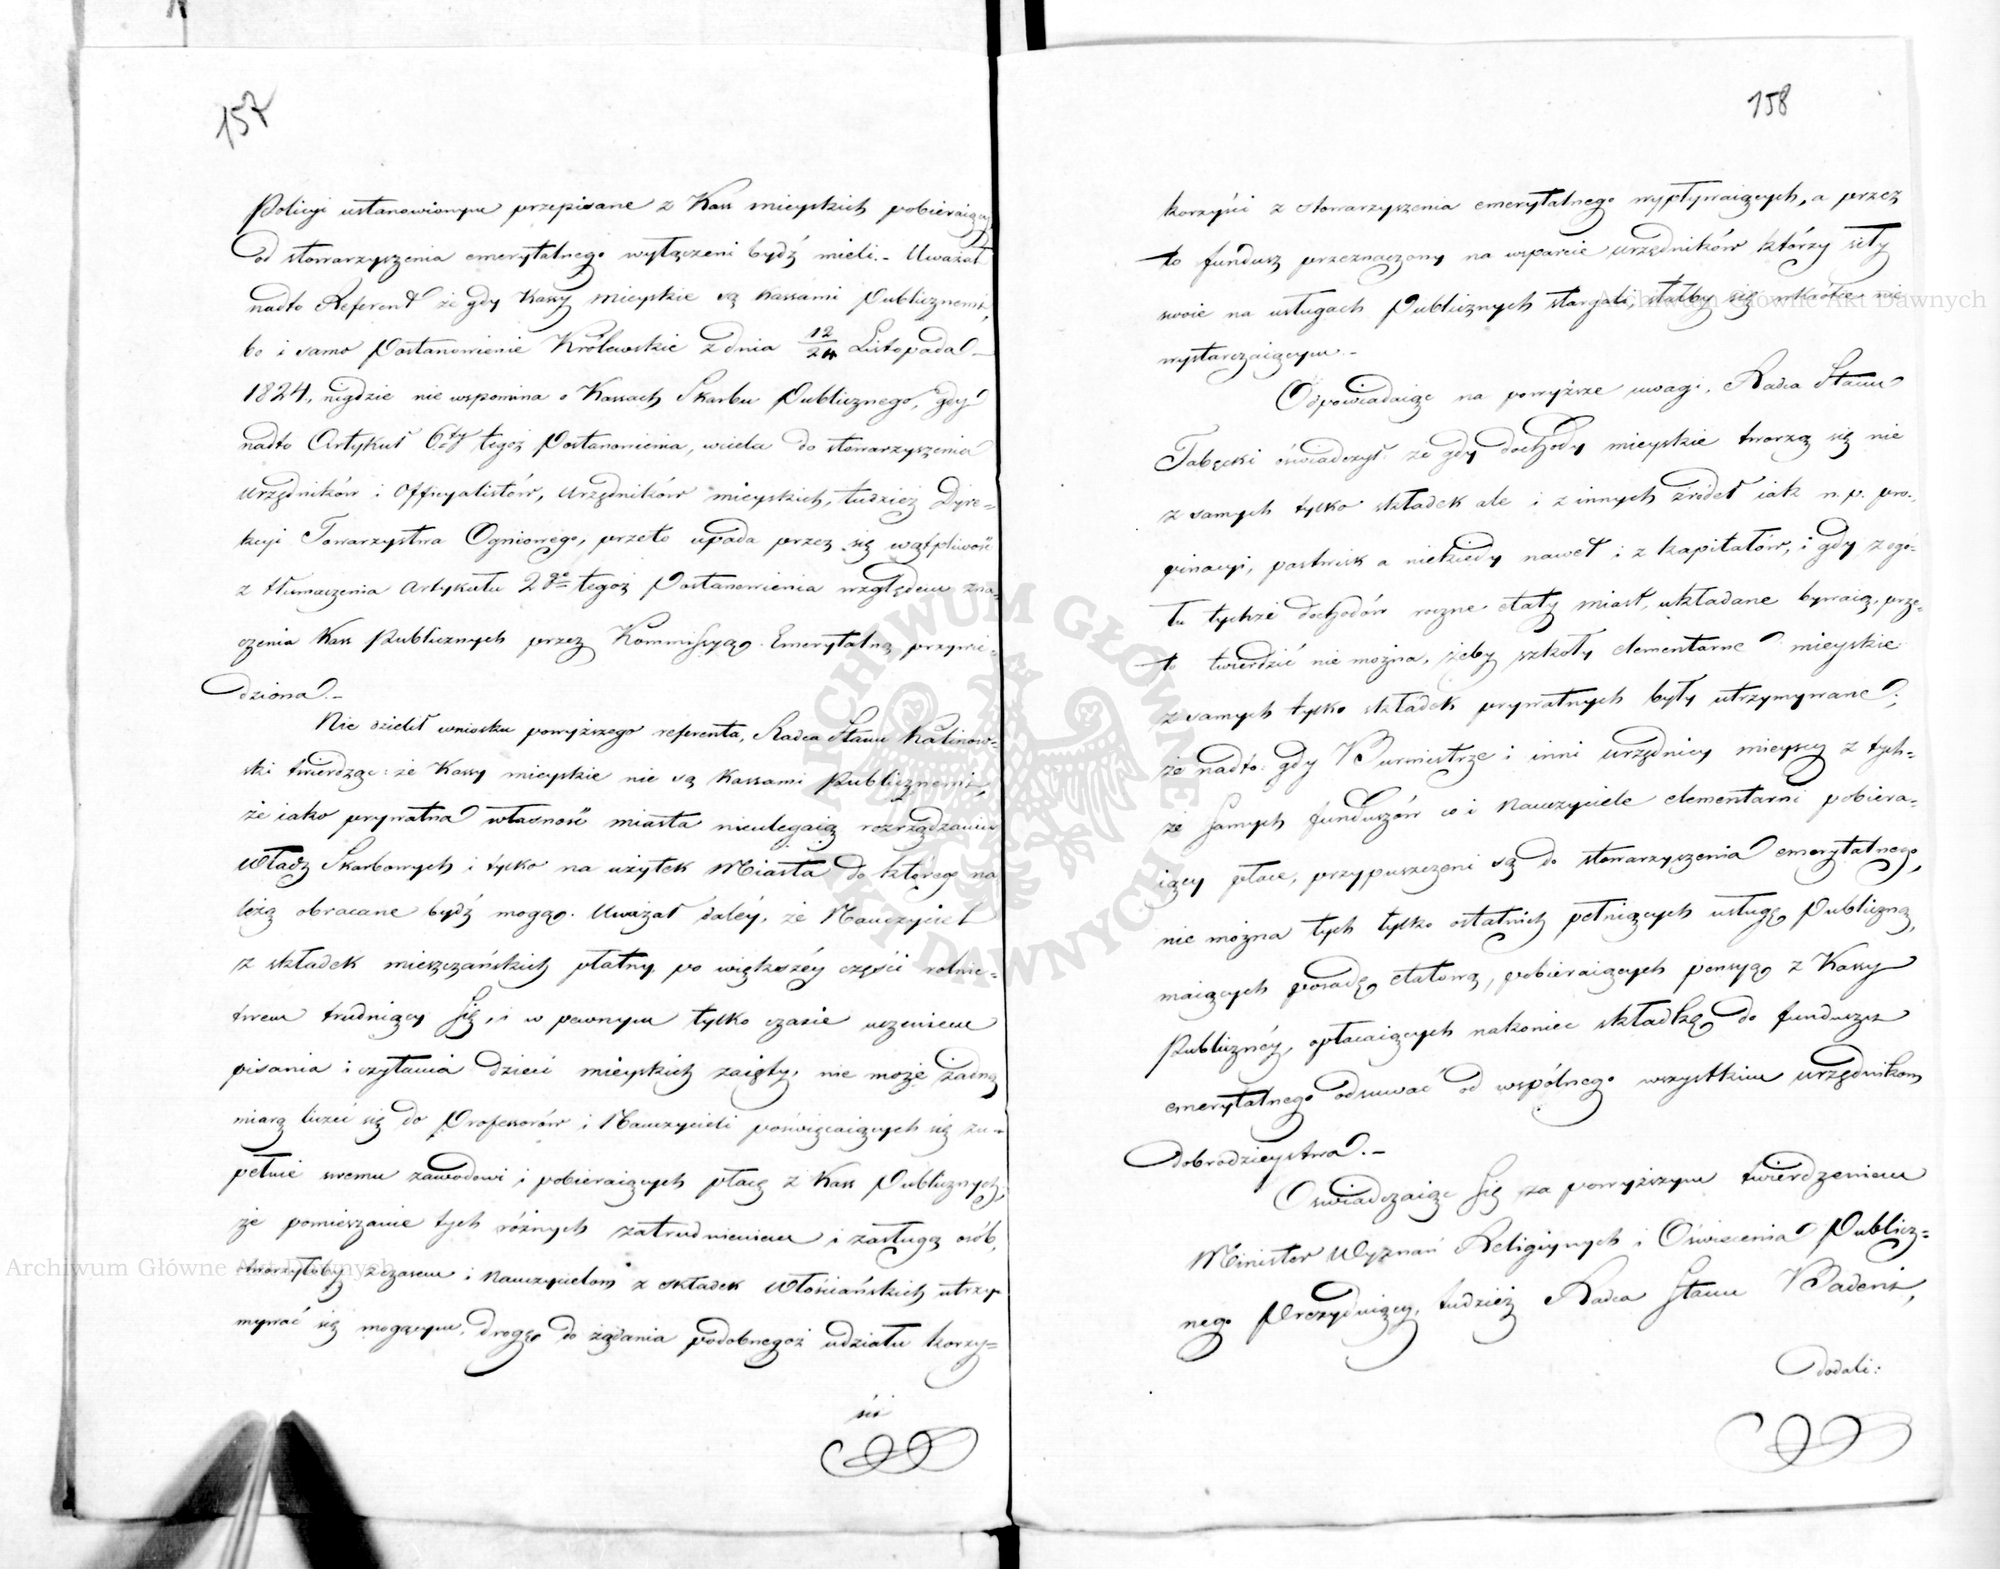 157
Policyi ustanowionym przepisane z Kass mieyskich pobieraiący
od stowarzyszenia emerytalnego wyłączeni bydź mieli. - Uważał
nadto Referent że gdy Kassy mieyskie są Kassami Publicznemi,
bo i samo Postanowienie Królewskie z dnia 12/24 Listopada
1824, nigdzie nie wspomina o Kassach Skarbu Publicznego, gdy
nadto Artykuł 6ty tegoż Postanowienia, wciela do stowarzyszenia
Urzędników i Officyalistów, Urzędników mieyskich, tudzież Dyre=
kcyi Towarzystwa Ogniowego, przeto upada przez się wątpliwość
z tłumaczenia Artykułu 2go tegoż Postanowienia względem zna=
czenia Kass Publicznych przez Kommissyą Emerytalną przywie=
dziona. -
Nie dzielił wniosku powyższego referenta, Radca Stanu Kalinow=
ski twierdząc: że Kassy mieyskie nie są Kassami Publicznemi,
że iako prywatna własność miasta nieulegaią rozrządzeniu
Władz Skarbowych i tylko na użytek Miasta do którego na
leżą obracane bydź mogą. Uważał daléy, że Nauczyciel
z składek mieszczańskich płatny, po większéy części rolnic=
twem trudniący się, i w pewnym tylko czasie uczeniem
pisania i czytania dzieci mieyskich zaięty, nie może żadną
miarą liczeć się do Professorów i Nauczycieli poświęcaiących się zu=
pełnie swemu zawodowi i pobieraiących płacę z Kass Publicznych,
że pomieszanie tych różnych zatrudnieniem i zasługą osób,
otworzyłoby z czasem i Nauczycielom z składek Włościańskich utrzy
mywać się mogącym, drogę do żądania podobnegoż udziału korzy=
ści
158
korzyści z stowarzyszenia emerytalnego wypływaiących, a przez
to fundusz przeznaczony na wsparcie urzędników którzy siły
swoie na usługach Publicznych stargali, stałby się wkrótce nie
wystarczaiącym. -
Odpowiadaiąc na powyższe uwagi, Radca Stanu
Tabęcki oświadczył: że gdy dochody mieyskie tworzą się nie
z samych tylko składek ale i z innych źródeł iak n. p. pro=
pinacyi, pastwisk a niekiedy nawet i z kapitałów, i gdy z ogó=
łu tychże dochodów roczne etaty miast, układane bywaią, prze=
to twierdzić nie można, żeby szkoły elementarne mieyskie
z samych tylko składek prywatnych były utrzymywane;
że nadto: gdy Burmistrze i inni urzędnicy mieyscy z tych=
że samych funduszów co i Nauczyciele elementarni pobiera=
iący płace, przypuszczeni są do stowarzyszenia emerytalnego,
nie można tych tylko ostatnich pełniących usługę Publiczną,
maiących posadę etatową, pobieraiących pensyą z Kassy
Publicznéy, opłacaiących nakoniec składkę do funduszu
emerytalnego odsuwać od wspólnego wszystkim urzędnikom
dobrodzieystwa. -
Oświadczaiąc się za powyższym twierdzeniem
Minister Wyznań Religiynych i Oświecenia Publicz=
nego Prezyduiący, tudzież Radca Stanu Badeni,
dodali:
Archiwum Główne Akt Dawnych
Archiwum Główne Akt Dawnych
ARCHIWUM GŁÓWNE AKT DAWNYCH